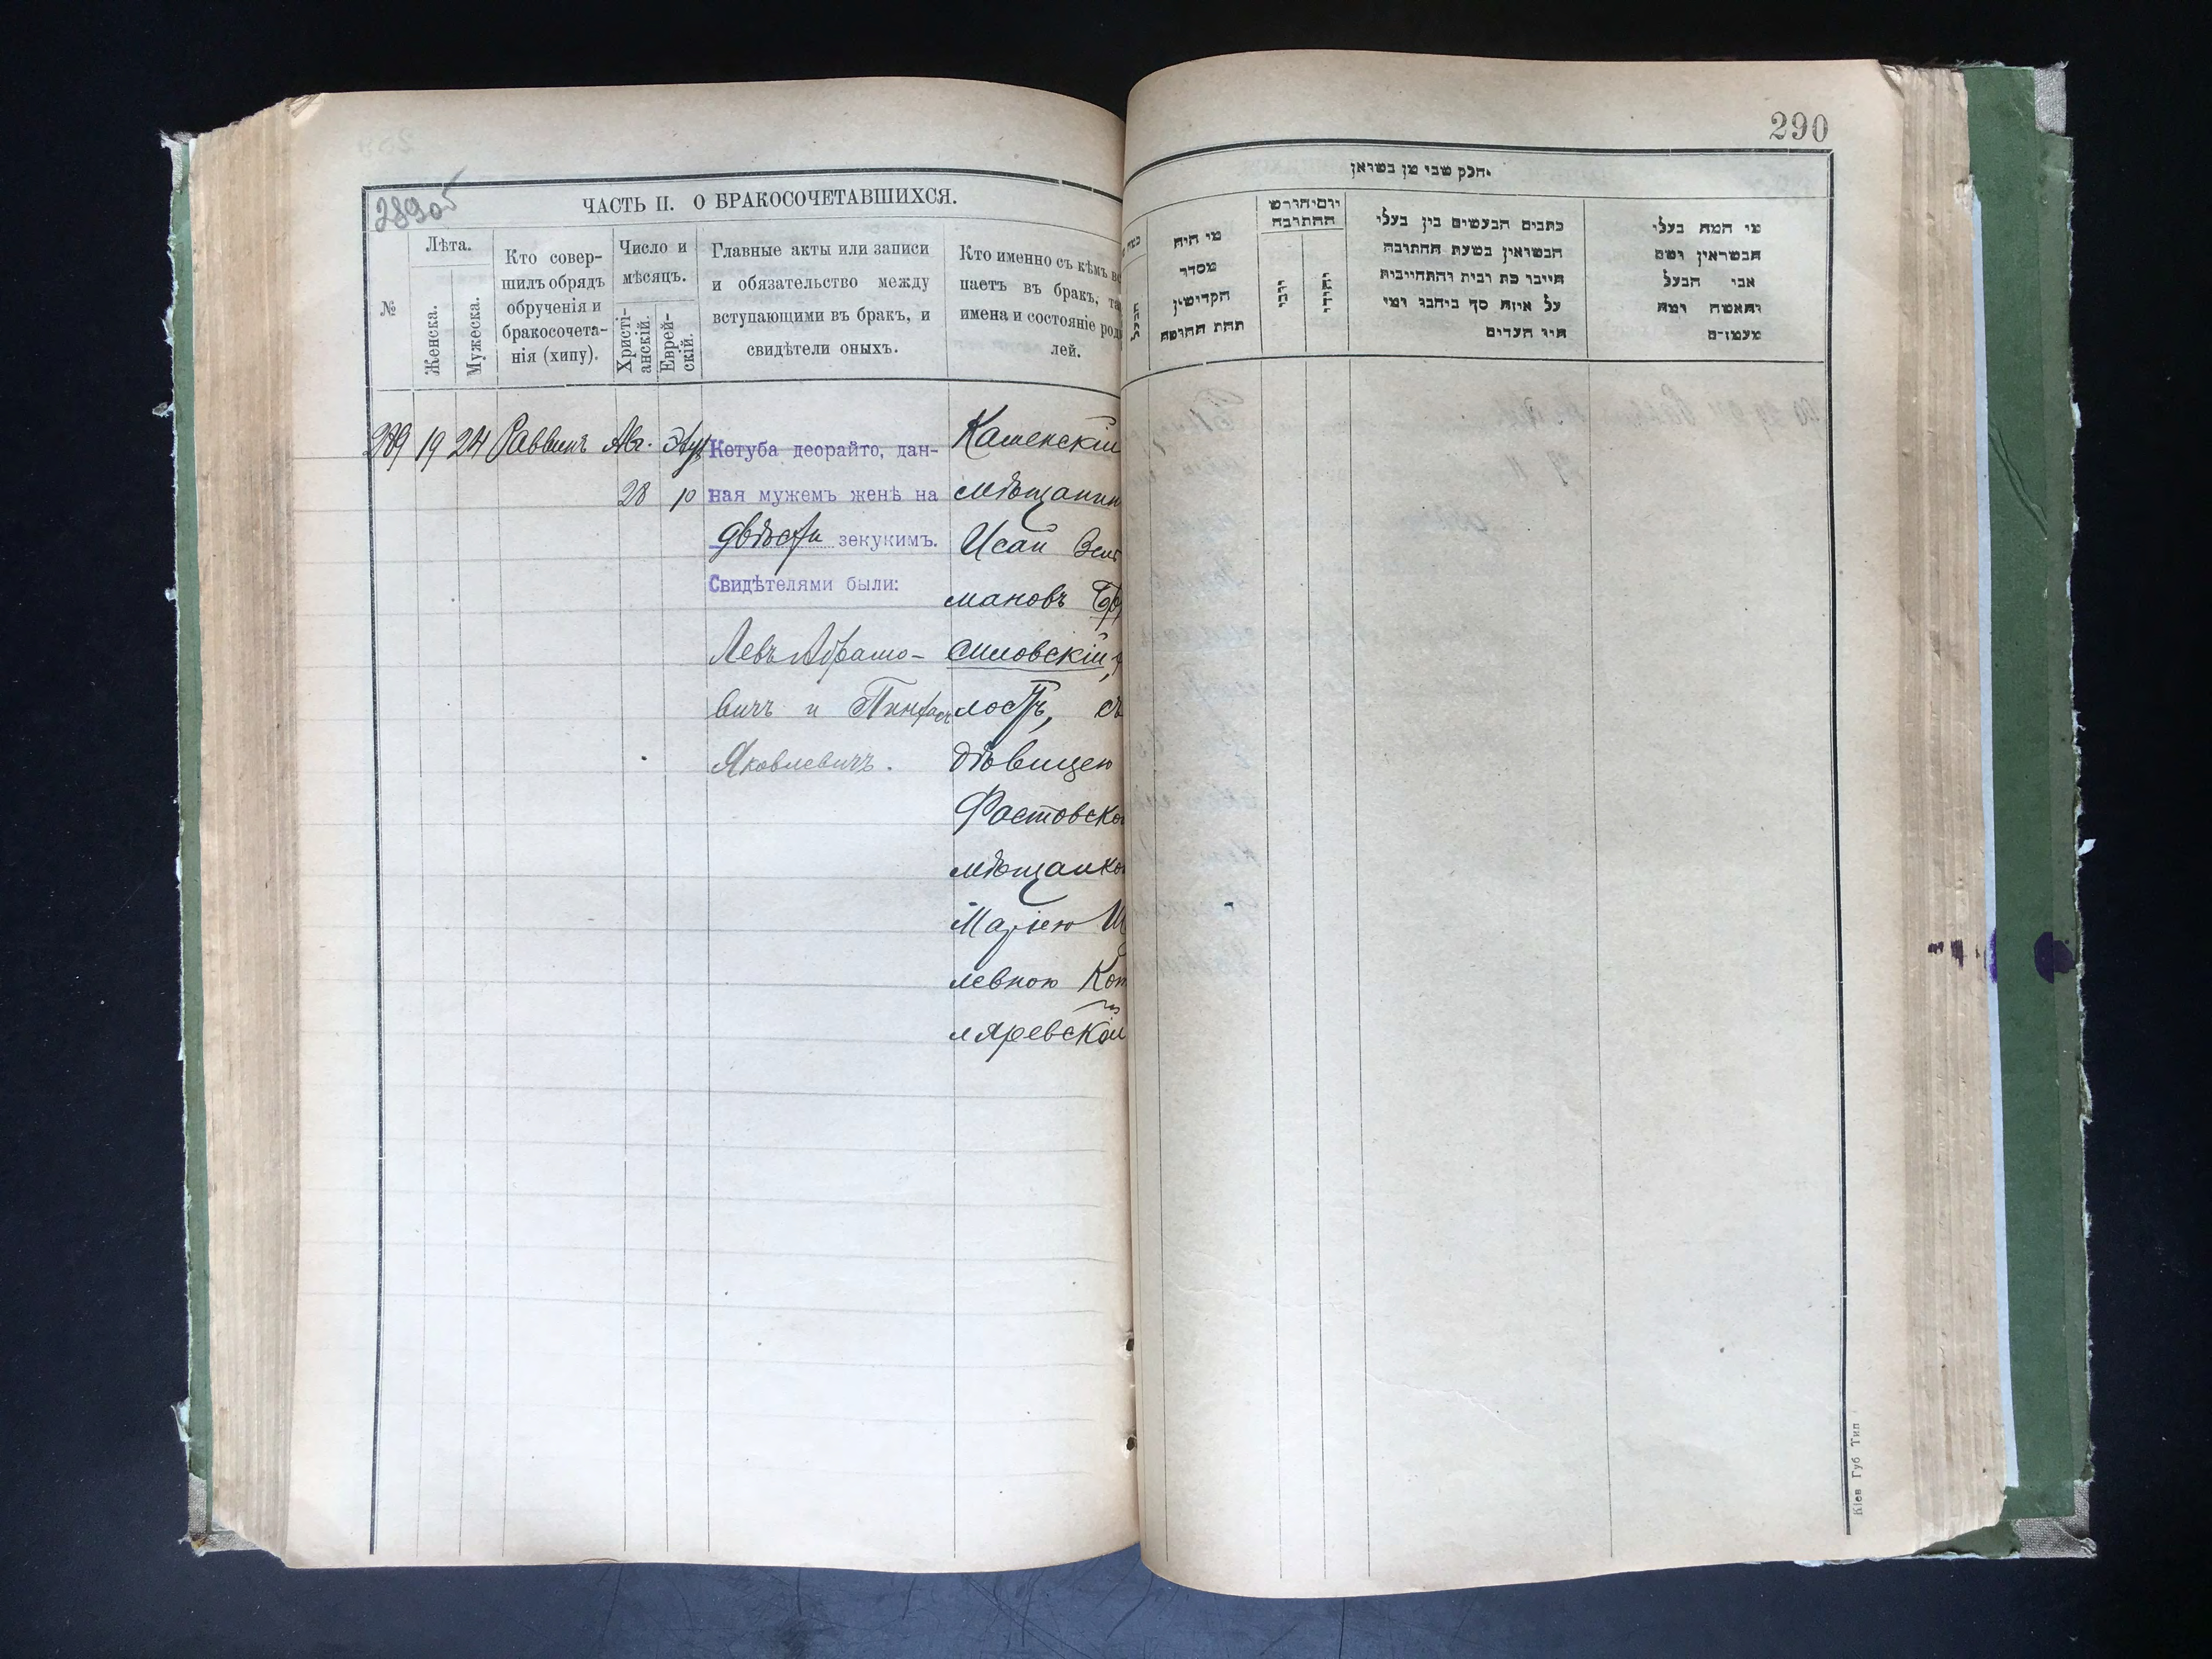 290
289об
ЧАСТЬ II. О БРАКОСОЧЕТАВШИХСЯ.
№
Лѣта.
Женска.
Мужеска.
Кто совер-
шилъ обрядъ
обрученія и
бракосочета-
нія (хипу).
Число и
мѣсяцъ.
Христі-
анскій.
Еврей-
скій.
Главные акты или записи
и обязательство между
вступающими въ бракъ, и
свидѣтели оныхъ.
Кто именно съ кѣмъ вс
паетъ въ бракъ, та
имена и состояніе род
лей.
289 19 24 Раввинъ Авг.
28 10
Кетуба деорайто, дан-
ная мужемъ женѣ на
двѣсти зекукимъ.
Свидѣтелями были:
Левъ Абрамо-
вичъ и Пинхасъ
Яковлевичъ.
Каменскій
мѣщанин
Исай Зел
мановъ
смловскій,
лостъ, съ
дѣвицею
Фастовско
мѣщанко
Маріею Ш
левною Кот
ляревской
חלק שני מן נשואין
מי היה
מסדר
הקדושין
תחת החופה
הבעל
יום וחודש
החתונה
יהודי
כתבים הנעשים בין בעלי
הנשואין בשעת החתונה
חייבו כת ובית והתחייבות
על איזה סך ביניהם ומי
היו העדים
מי המה בעלי
הנשואין ושם
אבי הבעל
והאשה ומה
מעמדם
Кіев Губ Тип